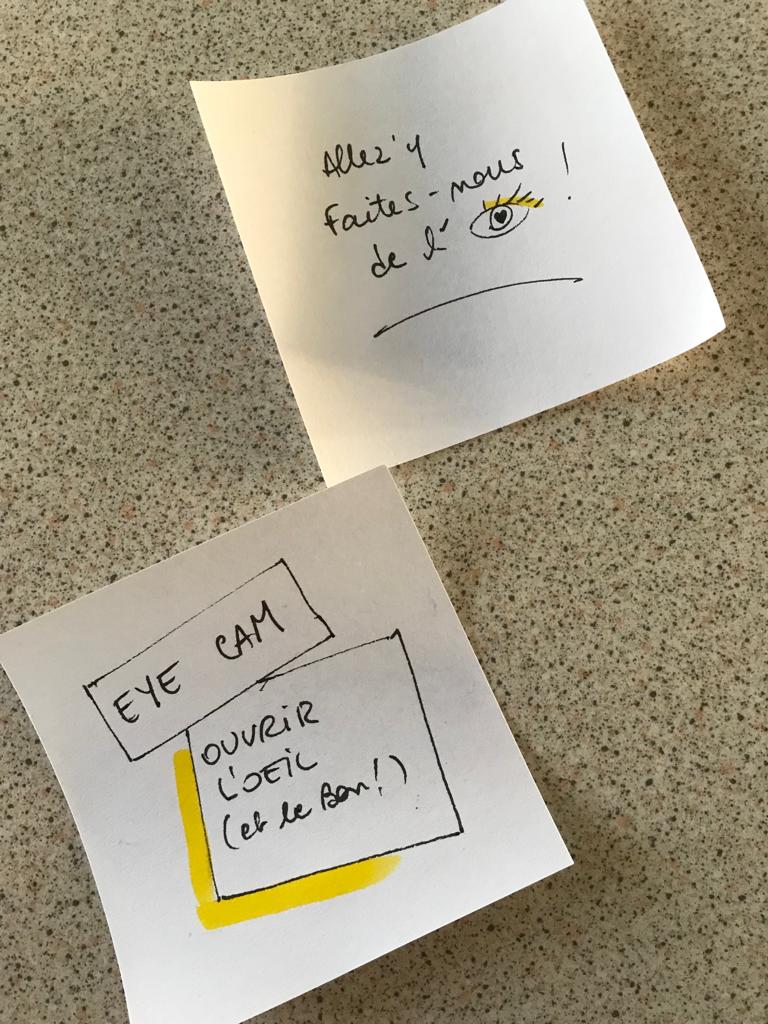 Allez'y
Faites-nous
de l' !
EYE CAM
OUVRIR
L'OEIL
(et le Bon!)